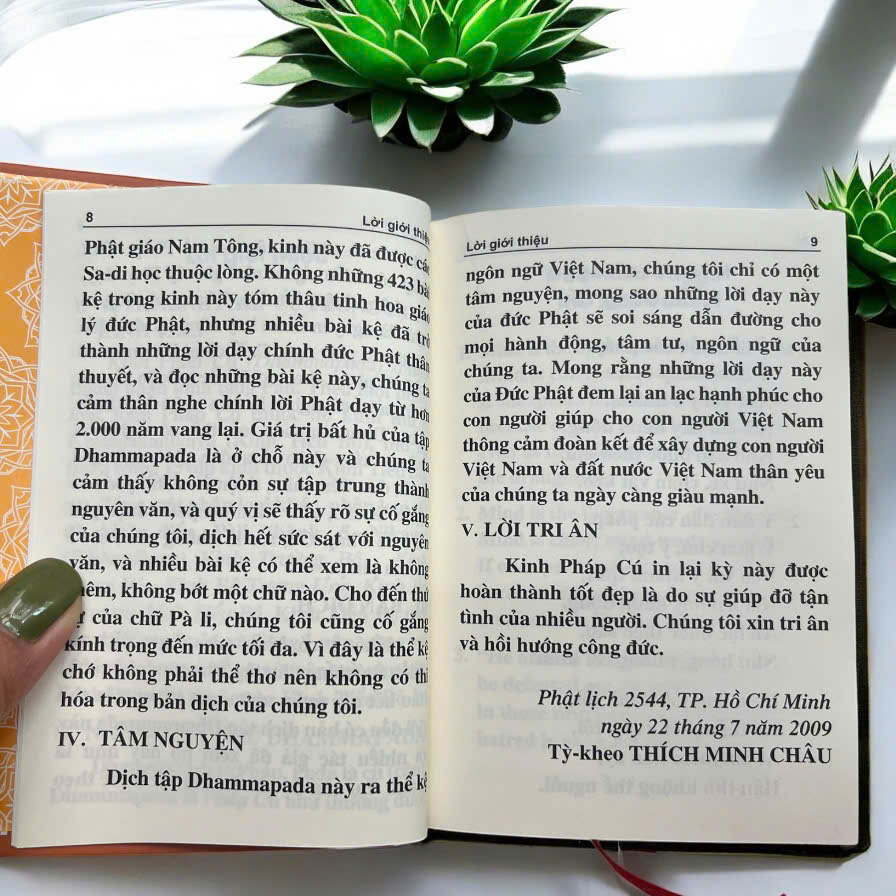 8
Lời giới thiệu
Phật giáo Nam Tông, kinh này đã được các
Sa-di học thuộc lòng. Không những 423 bài
kệ trong kinh này tóm thâu tinh hoa giáo
lý đức Phật, nhưng nhiều bài kệ đã trở
thành những lời dạy chính đức Phật thân
thuyết, và đọc những bài kệ này, chúng ta
cảm thân nghe chính lời Phật dạy từ hơn
2.000 năm vang lại. Giá trị bất hủ của tập
Dhammapada là ở chỗ này và chúng ta
cảm thấy không cón sự tập trung thành
nguyên văn, và quý vị sẽ thấy rõ sự cố gắng
của chúng tôi, dịch hết sức sát với nguyên
văn, và nhiều bài kệ có thể xem là không
thêm, không bớt một chữ nào. Cho đến thứ
tự của chữ Pà li, chúng tôi cũng cố gắng
kính trọng đến mức tối đa. Vì đây là thể kệ
chớ không phải thể thơ nên không có thi
hóa trong bản dịch của chúng tôi.
IV. TÂM NGUYỆN
Dịch tập Dhammapada này ra thể kệ
Lời giới thiệu
9
ngôn ngữ Việt Nam, chúng tôi chỉ có một
tâm nguyện, mong sao những lời dạy này
của đức Phật sẽ soi sáng dẫn đường cho
mọi hành động, tâm tư, ngôn ngữ của
chúng ta. Mong rằng những lời dạy này
của Đức Phật đem lại an lạc hạnh phúc cho
con người giúp cho con người Việt Nam
thông cảm đoàn kết để xây dựng con người
Việt Nam và đất nước Việt Nam thân yêu
của chúng ta ngày càng giàu mạnh.
V. LỜI TRI ÂN
Kinh Pháp Cú in lại kỳ này được
hoàn thành tốt đẹp là do sự giúp đỡ tận
tình của nhiều người. Chúng tôi xin tri ân
và hồi hướng công đức.
Phật lịch 2544, TP. Hồ Chí Minh
ngày 22 tháng 7 năm 2009
Tỳ-kheo THÍCH MINH CHÂU